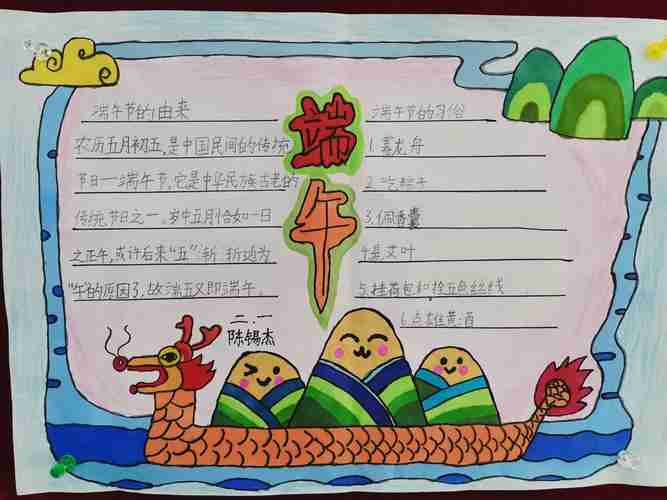 端午
端午节的由来
农历五月初五,是中国民间的传统
节日一端午节,它是中华民族古老的
传统节日之一。岁中五月恰如一日
之正午,或许后来“五”渐 渐地为
“午”的原因了,故 五又即端午。
二.一
陈锡杰
端午节的习俗
1.赛龙舟
2.吃粽子
3.佩香囊
4.悬艾叶
5.挂荷包和拴五色丝线
6.点雄黄酒